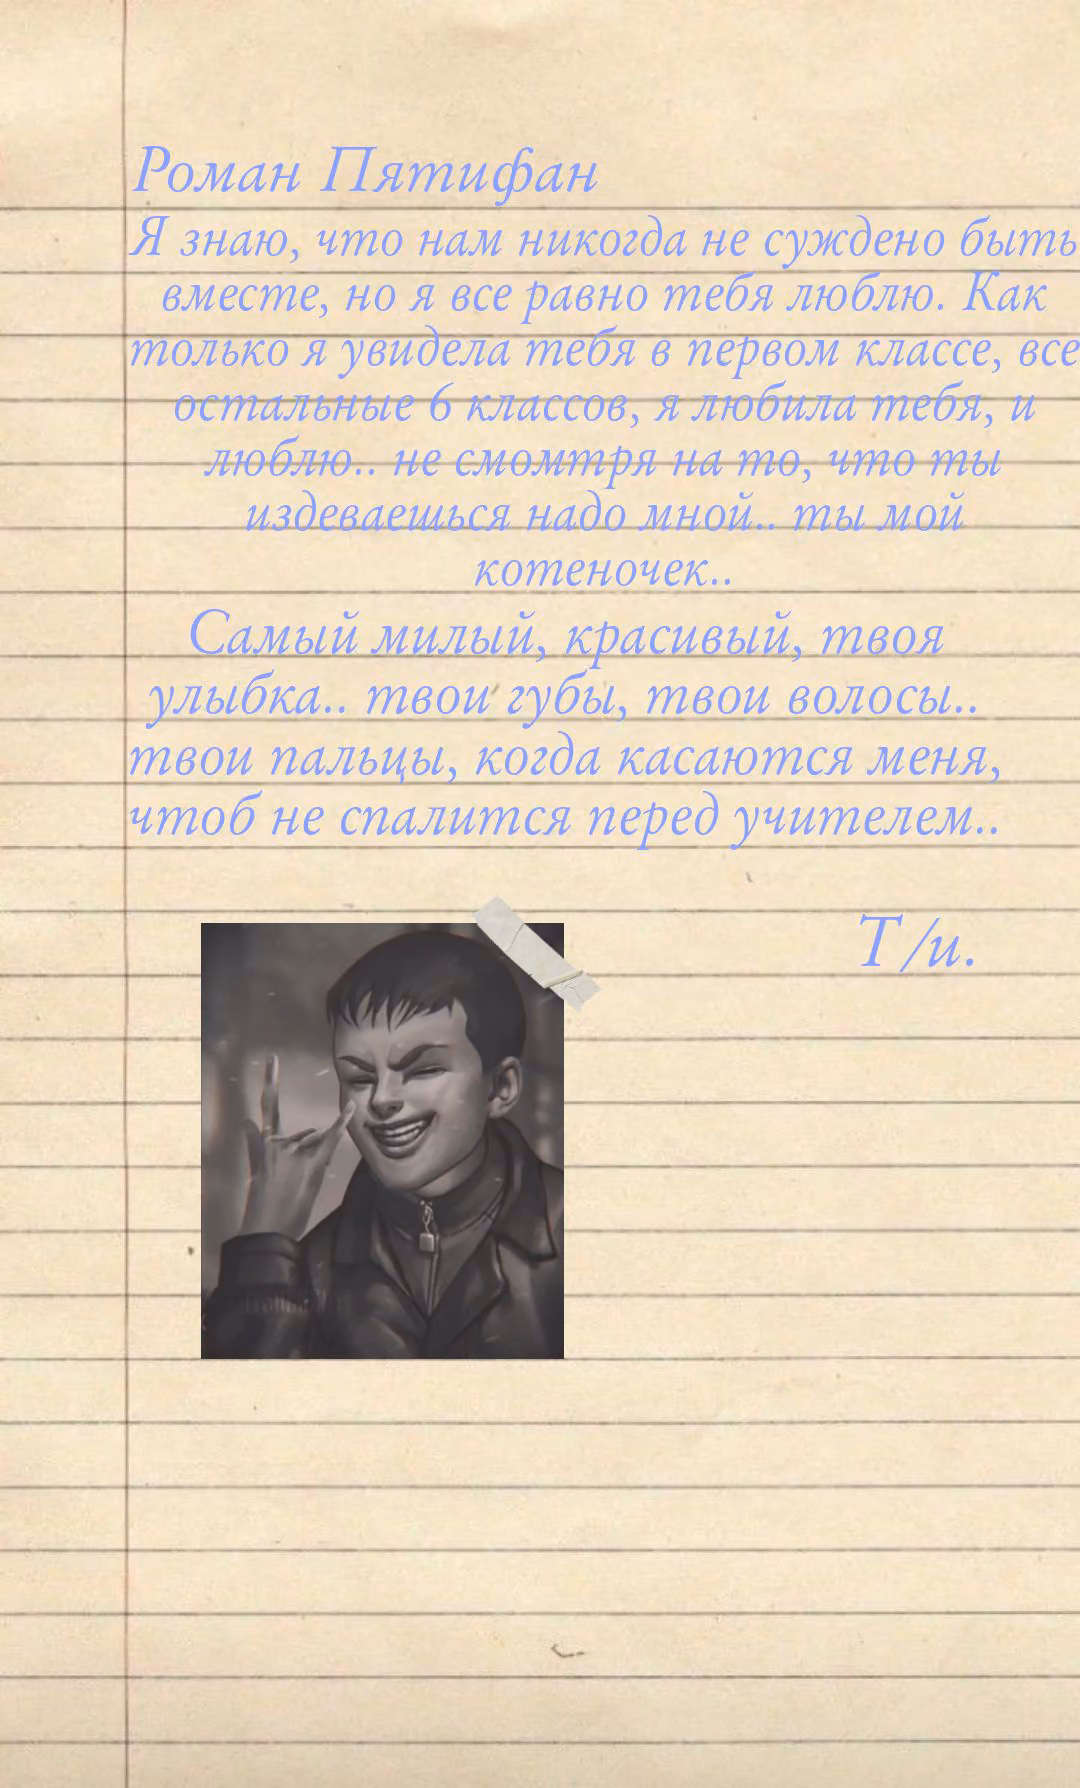 Роман Пятифан
Я знаю, что нам никогда не суждено быть
вместе, но я все равно тебя люблю. Как
только я увидела тебя в первом классе, все
остальные 6 классов, я любила тебя, и
люблю.. не смомтря на то, что ты
издеваешься надо мной.. ты мой
котеночек..
Самый милый, красивый, твоя
улыбка.. твои губы, твои волосы..
твои пальцы, когда касаются меня,
чтоб не спалится перед учителем..
Т/и.